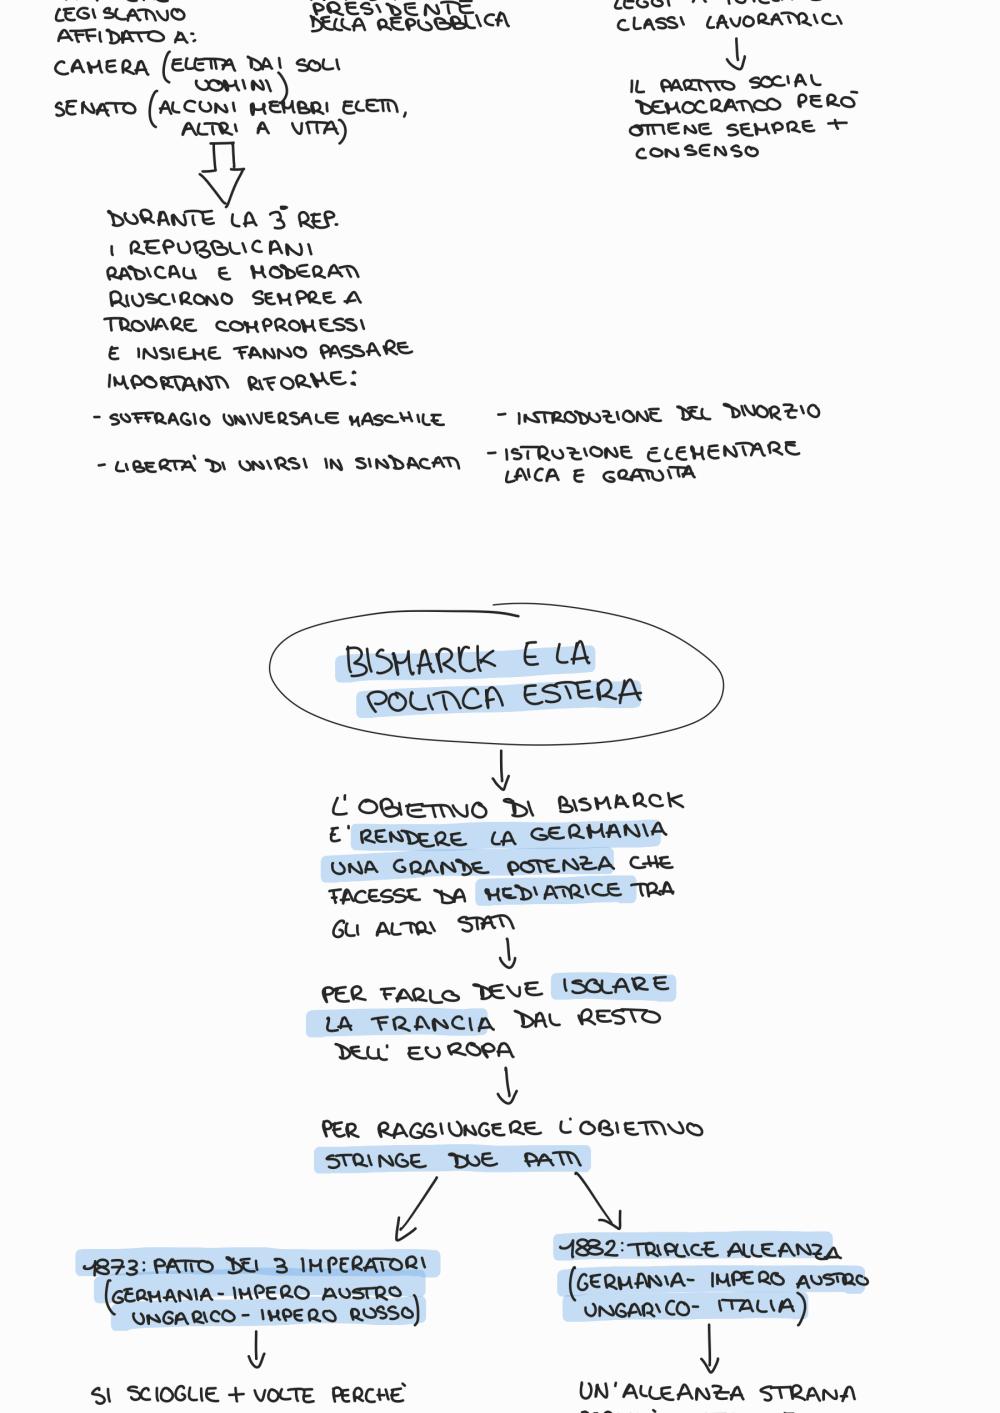 LEGISLATIVO
AFFIDATO A:
CAMERA (ELETTA DAI SOLI
UOMINI)
SENATO (ALCUNI MEMBRI ELETTI,
ALTRI A VITA)
PRESIDENTE
DELLA REPUBBLICA
LEGGI A
CLASSI LAVORATRICI
IL PARTITO SOCIAL
DEMOCRATICO PERÒ
OTTIENE SEMPRE +
CONSENSO
DURANTE LA 3° REP.
I REPUBBLICANI
RADICALI E MODERATI
RIUSCIRONO SEMPRE A
TROVARE COMPROMESSI
E INSIEME FANNO PASSARE
IMPORTANTI RIFORME:
- SUFFRAGIO UNIVERSALE MASCHILE
- INTRODUZIONE DEL DIVORZIO
- LIBERTA' DI UNIRSI IN SINDACATI
- ISTRUZIONE ELEMENTARE
LAICA E GRATUITA
BISMARCK E LA
POLITICA ESTERA
L'OBIETTIVO DI BISMARCK
E' RENDERE LA GERMANIA
UNA GRANDE POTENZA CHE
FACESSE DA MEDIATRICE TRA
GLI ALTRI STATI
PER FARLO DEVE ISOLARE
LA FRANCIA DAL RESTO
DELL' EUROPA
PER RAGGIUNGERE L'OBIETTIVO
STRINGE DUE PATTI
1873: PATTO DEI 3 IMPERATORI
(GERMANIA - IMPERO AUSTRO
UNGARICO - IMPERO RUSSO)
SI SCIOGLIE + VOLTE PERCHÈ
1882: TRIPLICE ALLEANZA
(GERMANIA - IMPERO AUSTRO
UNGARICO - ITALIA)
UN'ALLEANZA STRANA